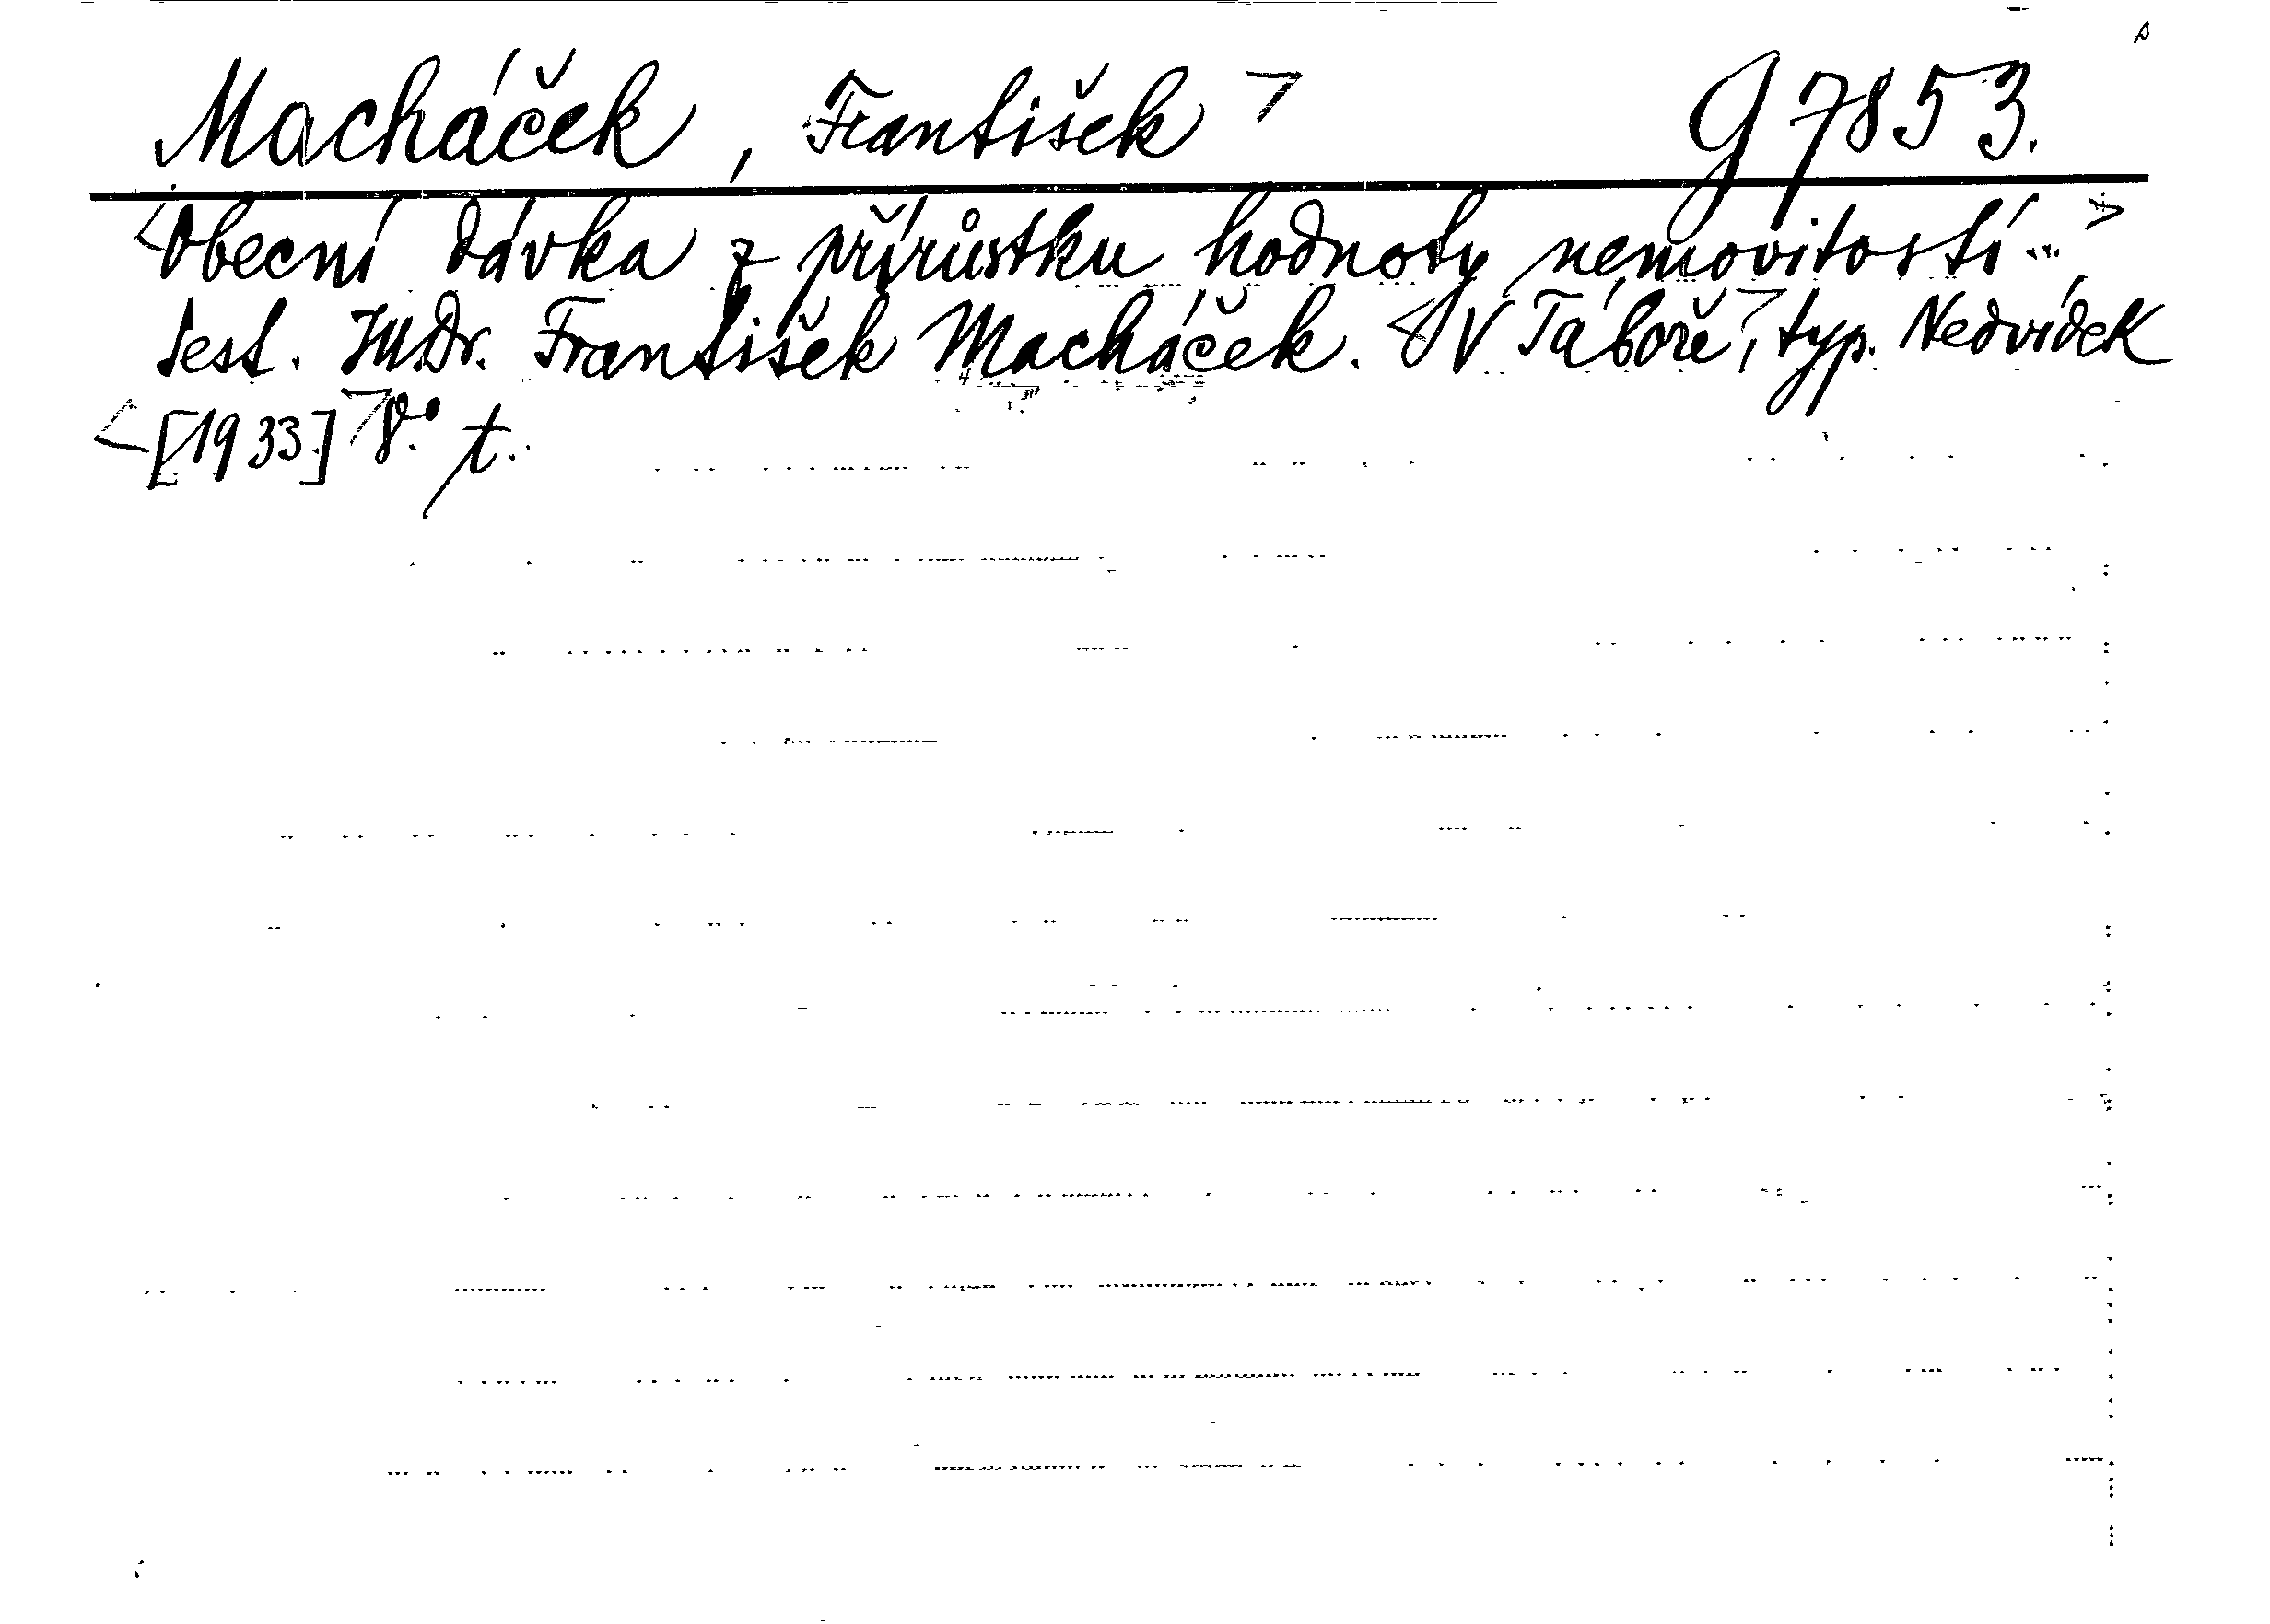 Macháček, František > g 7853.
<Obecní dávka z přírůstku hodnoty nemovitostí...>
sest. JUDr. František Macháček. <V Táboře>, typ. Nedvídek
<[1933]> 8° t.